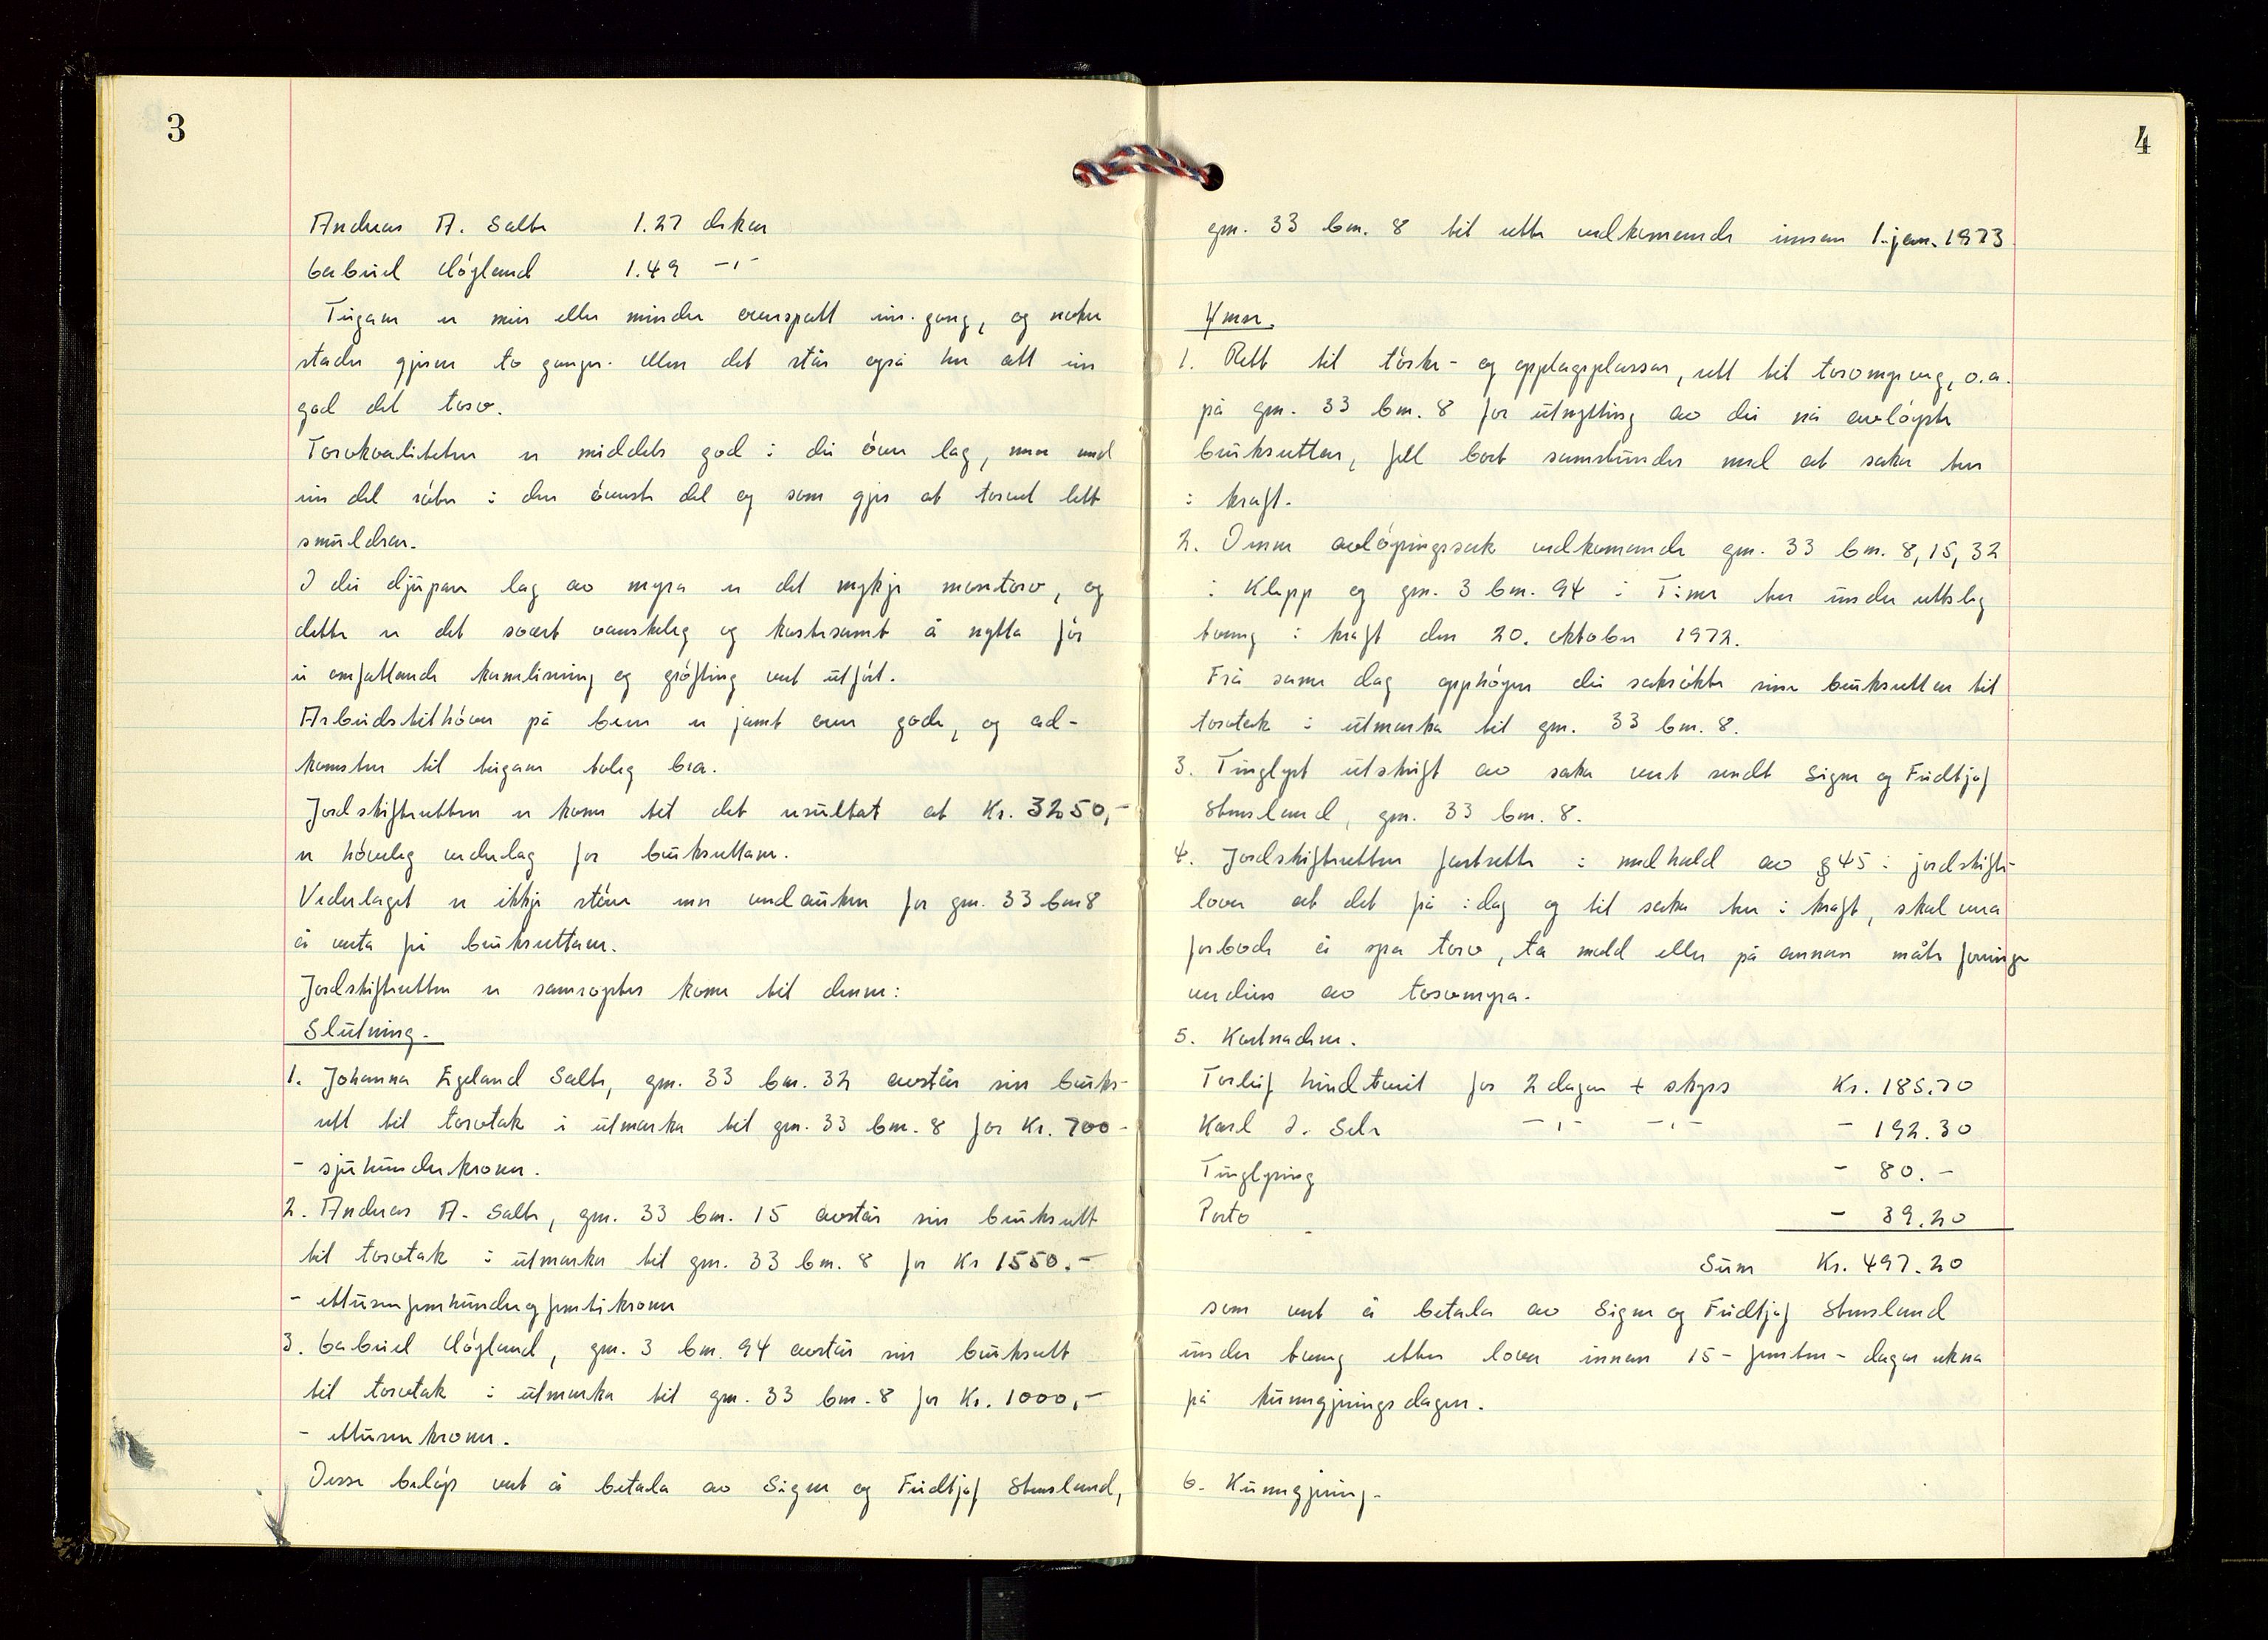 3
Andreas A. Salte 1.27 dekar
Gabriel Högland 1.49 -"-
Teigane er meir eller mindre overspatt ein gang, og nokre
stader gjerne to gonger. Men det står også her att ein
god del torv.
Torvkvaliteten er middels god i dei övre lag, men med
ein del röter i den överste del og som gjer at torvet lett
smuldrar.
I dei djupare lag av myra er det mykje mentorv, og
dette er det svært vanskeleg og kostesamt å nytta för
ei omfattande kanalisering og gröfting vert utfört.
Arbeidstilhöva på bruna er jamt over gode, og ad-
komsten til teigane toleg bra.
Jordskifteretten er kome til det resultat at Kr. 3250,-
er höveleg vederlag for bruksrettane.
Vederlaget er ikkje större enn verdauken for gnr. 33 bnr 8
å verta fri bruksrettane.
Jordskifteretten er samröystes kome til denne:
Slutning.
1. Johanna Egeland Salte, gnr. 33 bnr. 32 avstår sin bruks-
rett til torvtak i utmarka til gnr. 33 bnr. 8 for Kr. 700-
- sjuhundrekroner.
2. Andreas A. Salte, gnr. 33 bnr. 15 avstår sin bruksrett
til torvtak i utmarka til gnr. 33 bnr. 8 for Kr 1550.-
- ettusenfemhundreogfemtikroner
3. Gabriel Högland, gnr. 3 bnr. 94 avstår sin bruksrett
til torvtak i utmarka til gnr. 33 bnr. 8 for Kr. 1000,-
- ettusenkroner.
Desse belöp vert å betala av Signe og Fridtjof Stensland,
4
gnr. 33 bnr. 8 til rette vedkomande innan 1. jan. 1973
Ymse.
1. Rett til törke- og opplagsplassar, rett til torvmyrveg, o.a.
på gnr. 33 bnr. 8 for utnytting av dei nå avlöyste
bruksrettar, fell bort samstundes med at saka ter
i kraft.
2. Denne avlöysingssak vedkomande gnr. 33 bnr. 8, 15, 32
i Klepp og gnr. 3 bnr. 94 i Time ter under rettsleg
tvang i kraft den 20. oktober 1972.
Frå same dag opphöyrer dei saksökte sine bruksrettar til
torvtak i utmarka til gnr. 33 bnr. 8.
3. Tinglyst utskrift av saka vert sendt Signe og Fridtjof
Stensland, gnr. 33 bnr. 8.
4. Jordskifteretten fastsette i medhald av § 45 i jordskifte-
lova at det frå idag og til saka ter i kraft, skal vera
forbode å spa torv, ta mold eller på annan måte forringe
verdien av torvmyra.
5. Kostnadene.
Torleif Lindtveit for 2 dagar + skyss Kr. 185.70
Karl J. Sele -"- -"- - 192.30
Tinglysing - 80.-
Porto - 39.20
Sum Kr. 497.20
som vert å betala av Signe og Fridtjof Stensland
under tvang etter lova innan 15 - femten - dagar rekna
frå kunngjeringsdagen.
6. Kunngjering.